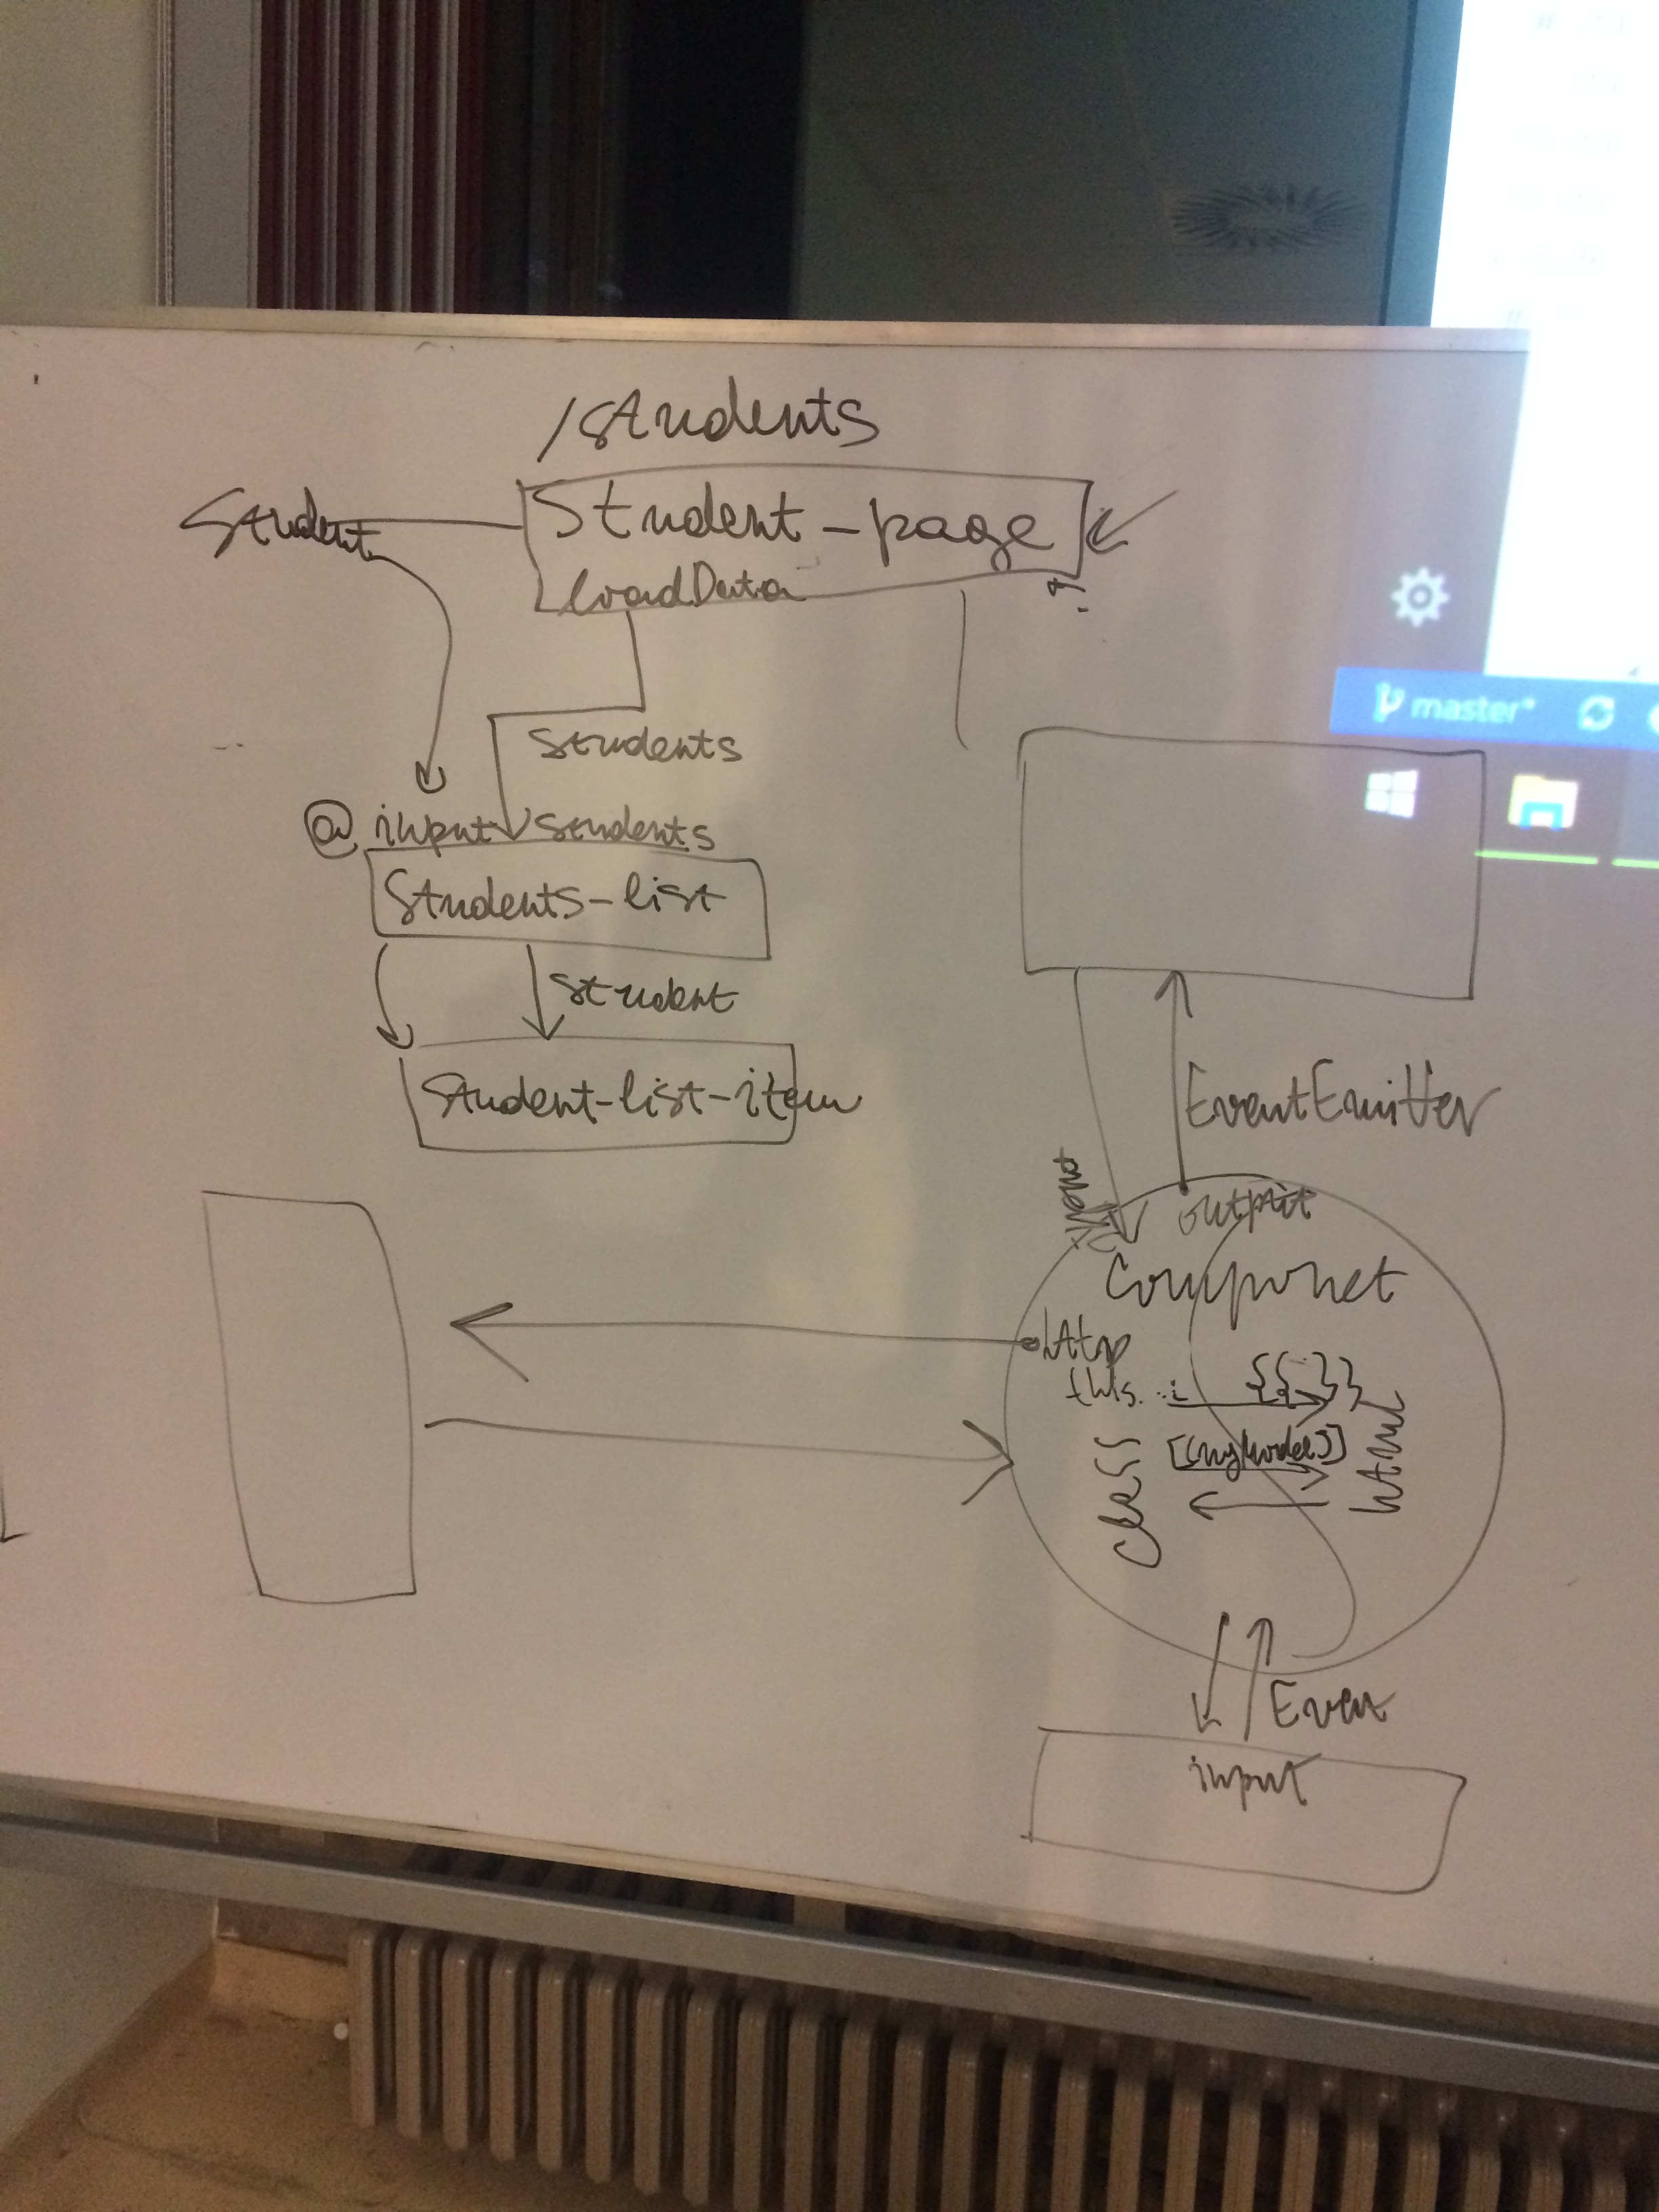 /students
Student
Student-page
loadData
students
@input students
Students-list
student
Student-list-item
master*
EventEmitter
input
output
Componet
http
this.
{{ }}
[(ngModel)]
class
html
Even
input